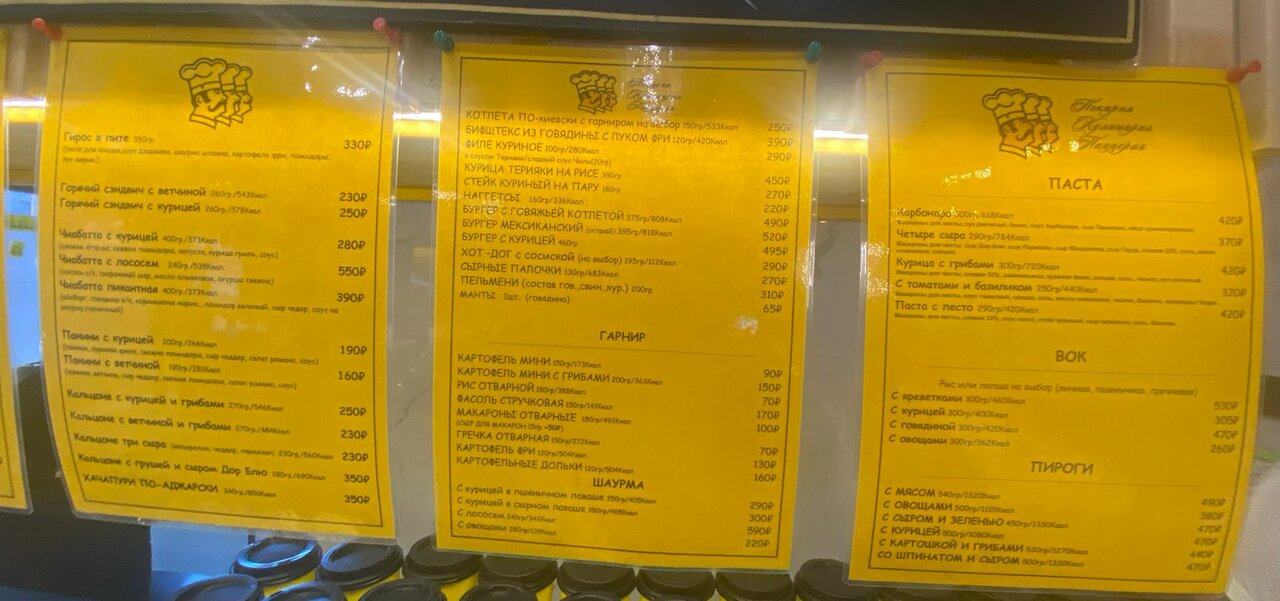 Гирос в пите 350гр. 330₽
Горячий сэндвич с ветчиной 260гр./543Ккал 230₽
Горячий сэндвич с курицей 260гр./578Ккал 250₽
Чиабатта с курицей 400гр./373Ккал 280₽
(свежие огурцы, свежие помидоры, капуста, курица гриль, соус)
Чиабатта с лососем 240гр./538Ккал 550₽
(лосось s/c, творожный сыр, масло оливковое, огурцы свежие)
Чиабатта пикантная 400гр./373Ккал 390₽
Панини с курицей 200гр./266Ккал 190₽
(панини, куриное филе, свежие помидоры, сыр чеддер, салат романо, соус)
Панини с ветчиной 190гр./281Ккал 160₽
(панини, ветчина, сыр чеддер, свежие помидоры, салат романо, соус)
Кальцоне с курицей и грибами 270гр./546Ккал 250₽
Кальцоне с ветчиной и грибами 270гр./484Ккал 230₽
Кальцоне три сыра (моцарелла, чеддер, пармезан) 230гр./560Ккал 230₽
Кальцоне с грушей и сыром Дор Блю 280гр./690Ккал 350₽
ХАЧАПУРИ ПО-АДЖАРСКИ 340гр./850Ккал 350₽
КОТЛЕТА ПО-киевски с гарниром на выбор 150гр/533Ккал 250₽
БИФШТЕКС ИЗ ГОВЯДИНЫ С ЛУКОМ ФРИ 120гр/420Ккал 390₽
ФИЛЕ КУРИНОЕ 100гр/280Ккал 290₽
с соусом Терияки/сладкий соус Чили(20гр)
КУРИЦА ТЕРИЯКИ НА РИСЕ 390гр 450₽
СТЕЙК КУРИНЫЙ НА ПАРУ 180гр 270₽
НАГГЕТСЫ 160гр/336Ккал 220₽
БУРГЕР С ГОВЯЖЬЕЙ КОТЛЕТОЙ 375гр/808Ккал 490₽
БУРГЕР МЕКСИКАНСКИЙ (острый) 395гр/818Ккал 520₽
БУРГЕР С КУРИЦЕЙ 460гр 495₽
ХОТ -ДОГ с сосиской (на выбор) 195гр/112Ккал 290₽
СЫРНЫЕ ПАЛОЧКИ 130гр/683Ккал 270₽
ПЕЛЬМЕНИ (состав гов.,свин.,кур.) 200гр. 310₽
МАНТЫ 1шт. (говядина) 65₽
ГАРНИР
КАРТОФЕЛЬ МИНИ 150гр/173Ккал 90₽
КАРТОФЕЛЬ МИНИ С ГРИБАМИ 200гр/363Ккал 150₽
РИС ОТВАРНОЙ 150гр/388Ккал 70₽
ФАСОЛЬ СТРУЧКОВАЯ 150гр/141Ккал 170₽
МАКАРОНЫ ОТВАРНЫЕ 150гр/492Ккал 100₽
(СЫР ДЛЯ МАКАРОН 15гр +50₽)
ГРЕЧКА ОТВАРНАЯ 150гр/272Ккал 70₽
КАРТОФЕЛЬ ФРИ 120гр/504Ккал 130₽
КАРТОФЕЛЬНЫЕ ДОЛЬКИ 120гр/504Ккал 160₽
ШАУРМА
С курицей в пшеничном лаваше 350гр/405Ккал 290₽
С курицей в сырном лаваше 350гр/405Ккал 300₽
С лососем 240гр/342Ккал 590₽
С овощами 280гр/135Ккал 220₽
Пекарня
Кулинария
Пиццерия
ПАСТА
Карбонара 300гр/618Ккал 420₽
Четыре сыра 290гр/784Ккал 370₽
Курица с грибами 300гр/720Ккал 420₽
С томатами и базиликом 250гр/440Ккал 320₽
Паста с песто 290гр/420Ккал 420₽
ВОК
Рис или лапша на выбор (яичная, пшеничная, гречневая)
С креветками 300гр/460Ккал 530₽
С курицей 300гр/400Ккал 305₽
С говядиной 300гр/420Ккал 470₽
С овощами 300гр/362Ккал 260₽
ПИРОГИ
С МЯСОМ 540гр/1320Ккал 490₽
С ОВОЩАМИ 500гр/1115Ккал 380₽
С СЫРОМ И ЗЕЛЕНЬЮ 450гр/1330Ккал 470₽
С КУРИЦЕЙ 500гр/1080Ккал 470₽
С КАРТОШКОЙ И ГРИБАМИ 530гр/1270Ккал 440₽
СО ШПИНАТОМ И СЫРОМ 500гр/1330Ккал 470₽